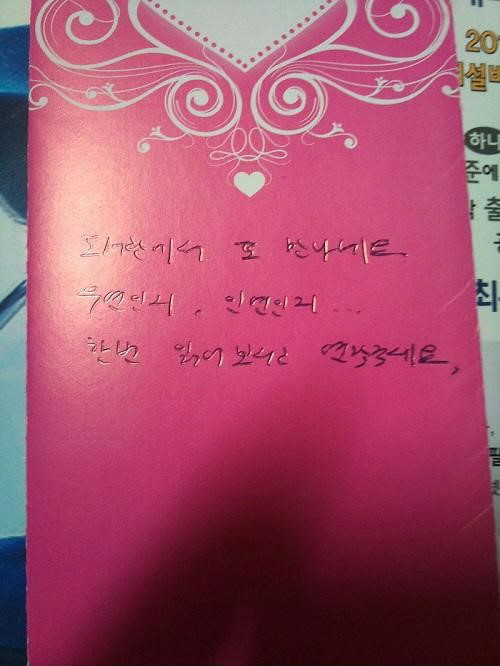 도서관에서 또 만나네요
우연인지, 인연인지...
한번 읽어보시고 연락주세요,
201
하나
준에
출
최
필